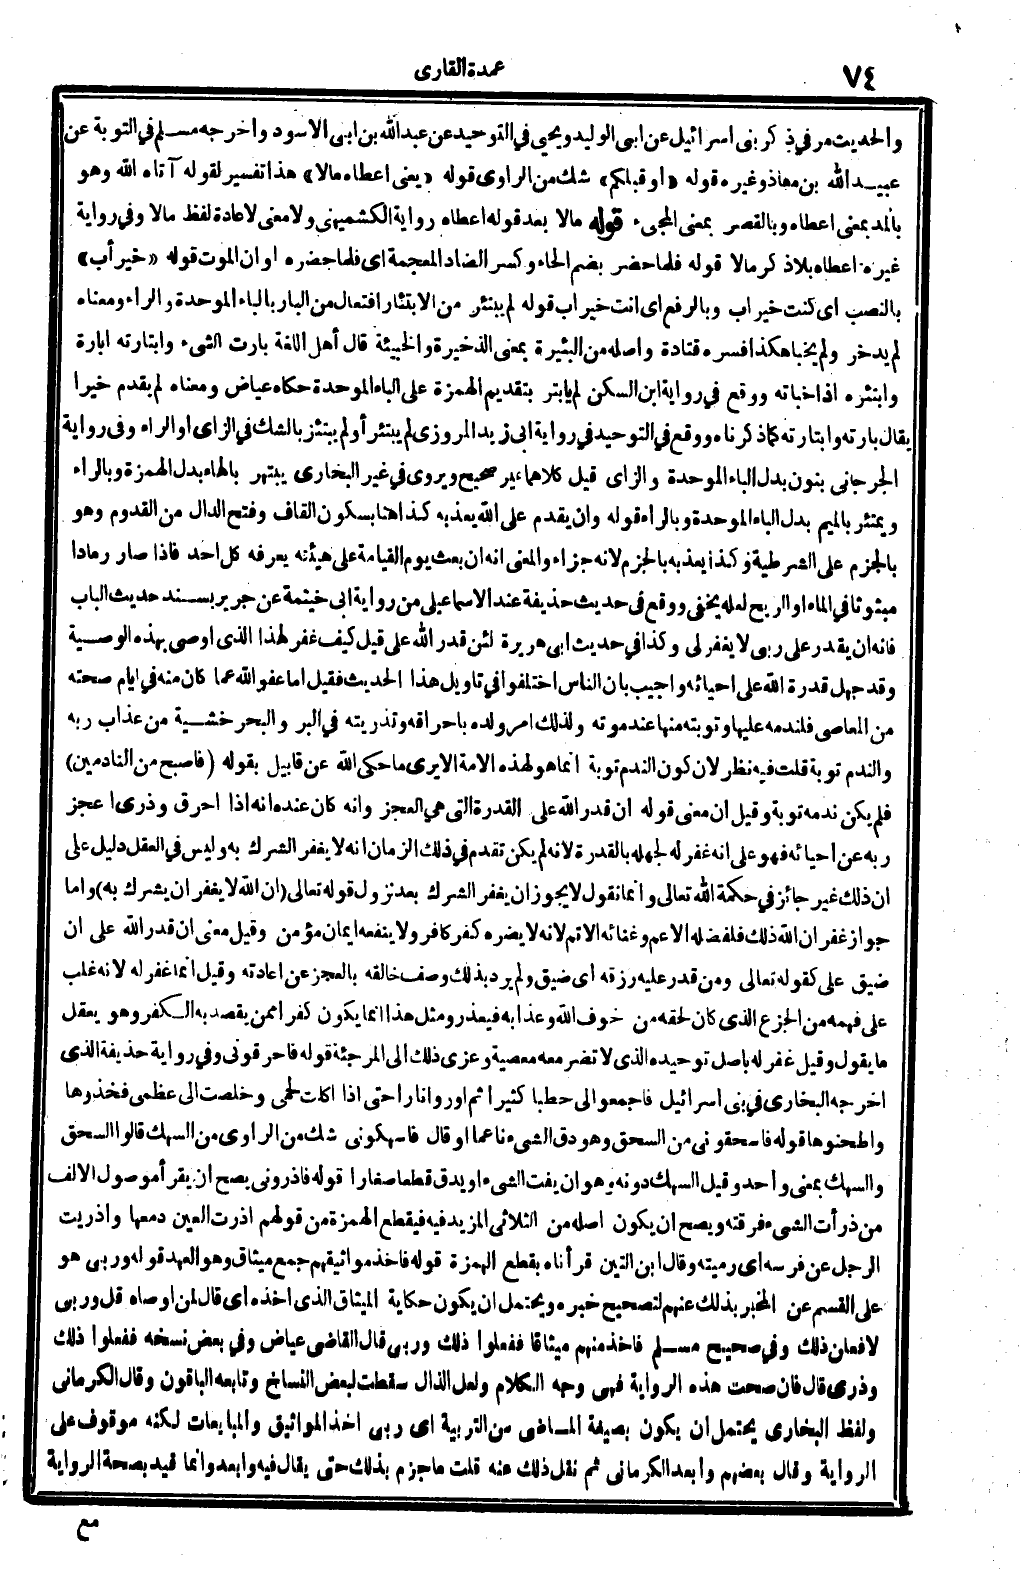 ٧٤
عمدة القارى
والحديث مر فى ذكر بنى اسرائيل عن ابى الوليد ويحيى فى التوحيد عن عبدالله بن ابى الاسود واخرجه مسلم فى التوبة عن
عبيد الله بن معاذ وغيره قوله «او قبلكم» شك من الراوى قوله «يعنى اعطاه مالا» هذا تفسير لقوله آتاه الله وهو
بالمد بمعنى اعطاه وبالقصر بمعنى المجىء قوله مالا بعد قوله اعطاه رواية الكشميهنى ولا معنى لاعادة لفظ مالا وفى رواية
غيره اعطاه بلا ذكر مالا قوله فلما حضر بضم الحاء وكسر الضاد المعجمة اى فلما حضره اوان الموت قوله «خير أب»
بالنصب اى كنت خير اب وبالرفع اى انت خير اب قوله لم يبتئر من الابتئار افتعال من البار بالباء الموحدة والراء ومعناه
لم يدخر ولم يخبا هكذا فسره قتادة واصله من البئيرة بمعنى الذخيرة والخبيئة قال أهل اللغة بارت الشىء وابتارته ابارة
وابتئره اذا خباته ووقع فى رواية ابن السكن لم يابتر بتقديم الهمزة على الباء الموحدة حكاه عياض ومعناه لم يقدم خيرا
يقال بارته وابتارته كما ذكرناه ووقع فى التوحيد فى رواية ابى زيد المروزى لم يبتئر أو لم يبتئز بالشك فى الزاى او الراء وفى رواية
الجرجانى بنون بدل الباء الموحدة والزاى قيل كلاهما غير صحيح ويروى فى غير البخارى يبتهر بالهاء بدل الهمزة وبالراء
ويمتئر بالميم بدل الباء الموحدة وبالراء قوله وان يقدم على الله يعذبه كذا هنا بسكون القاف وفتح الدال من القدوم وهو
بالجزم على الشرطية وكذا يعذبه بالجزم لانه جزاء والمعنى انه ان بعث يوم القيامة على هيئته يعرفه كل احد فاذا صار رمادا
مبثوثا فى الماء او الريح لعله يخفى ووقع فى حديث حذيفة عند الاسماعيلى من رواية ابى خيثمة عن جرير بسند حديث الباب
فانه ان يقدر على ربى لا يغفر لى وكذا فى حديث ابى هريرة لئن قدر الله على قيل كيف غفر لهذا الذى اوصى بهذه الوصية
وقد جهل قدرة الله على احيائه واجيب بان الناس اختلفوا فى تاويل هذا الحديث فقيل اما عفو الله عما كان منه فى ايام صحته
من المعاصى فلندمه عليها وتوبته منها عند موته ولذلك امر ولده باحراقه وتذريته فى البر والبحر خشية من عذاب ربه
والندم توبة قلت فيه نظر لان كون الندم توبة انما هو لهذه الامة الا يرى ما حكى الله عن قابيل بقوله (فاصبح من النادمين)
فلم يكن ندمه توبة وقيل ان معنى قوله ان قدر الله على القدرة التى هى العجز وانه كان عنده انه اذا احرق وذرى اعجز
ربه عن احيائه فهو على انه غفر له لجهله بالقدرة لانه لم يكن تقدم فى ذلك الزمان انه لا يغفر الشرك به وليس فى العقل دليل على
ان ذلك غير جائز فى حكمة الله تعالى وانما نقول لا يجوز ان يغفر الشرك بعد نزول قوله تعالى (ان الله لا يغفر ان يشرك به) واما
جواز غفران الله ذلك فلفضله الاعم وغنائه الاتم لانه لا يضره كفر كافر ولا ينفعه ايمان مؤمن وقيل معنى ان قدر الله على ان
ضيق على كقوله تعالى ومن قدر عليه رزقه اى ضيق ولم يرد بذلك وصف خالقه بالعجز عن اعادته وقيل انما غفر له لانه غلب
على فهمه من الجزع الذى كان لحقه من خوف الله وعذابه فيعذر ومثل هذا انما يكون كفرا ممن يقصد به الكفر وهو يعقل
ما يقول وقيل غفر له باصل توحيده الذى لا تضر معه معصية وعزى ذلك الى المرجئة قوله فاحرقونى وفى رواية حذيفة الذى
اخرجه البخارى فى بنى اسرائيل فاجمعوا لى حطبا كثيرا ثم اوروا نارا حتى اذا اكلت لحمى وخلصت الى عظمى فخذوها
واطحنوها قوله فاسحقونى من السحق وهو دق الشىء ناعما او قال فاسهكونى شك من الراوى من السهك قالوا السحق
والسهك بمعنى واحد وقيل السهك دونه وهو ان يفت الشىء او يدق قطعا صغارا قوله فاذرونى يصح ان يقرأ موصول الالف
من ذرأت الشىء فرقته ويصح ان يكون اصله من الثلاثى المزيد فيه فيقطع الهمزة من قولهم اذرت العين دمعها واذريت
الرجل عن فرسه اى رميته وقال ابن التين قرأناه بقطع الهمزة قوله فاخذ مواثيقهم جمع ميثاق وهو العهد قوله وربى هو
على القسم عن المخبر بذلك عنهم لتصحيح خبره ويحتمل ان يكون حكاية الميثاق الذى اخذه اى قال لمن اوصاه قل وربى
لافعلن ذلك وفى صحيح مسلم فاخذ منهم ميثاقا ففعلوا ذلك وربى قال القاضى عياض وفى بعض نسخه ففعلوا ذلك
وذرى قال فان صحت هذه الرواية فهى وجه الكلام ولعل الذال سقطت لبعض النساخ وتابعه الباقون وقال الكرمانى
ولفظ البخارى يحتمل ان يكون بصيغة الماضى من التربية اى ربى اخذ المواثيق والمبايعات لكنه موقوف على
الرواية وقال بعضهم وابعد الكرمانى ثم نقل ذلك عنه قلت ما جزم بذلك حتى يقال فيه وابعد وانما قيد بصحة الرواية
مع